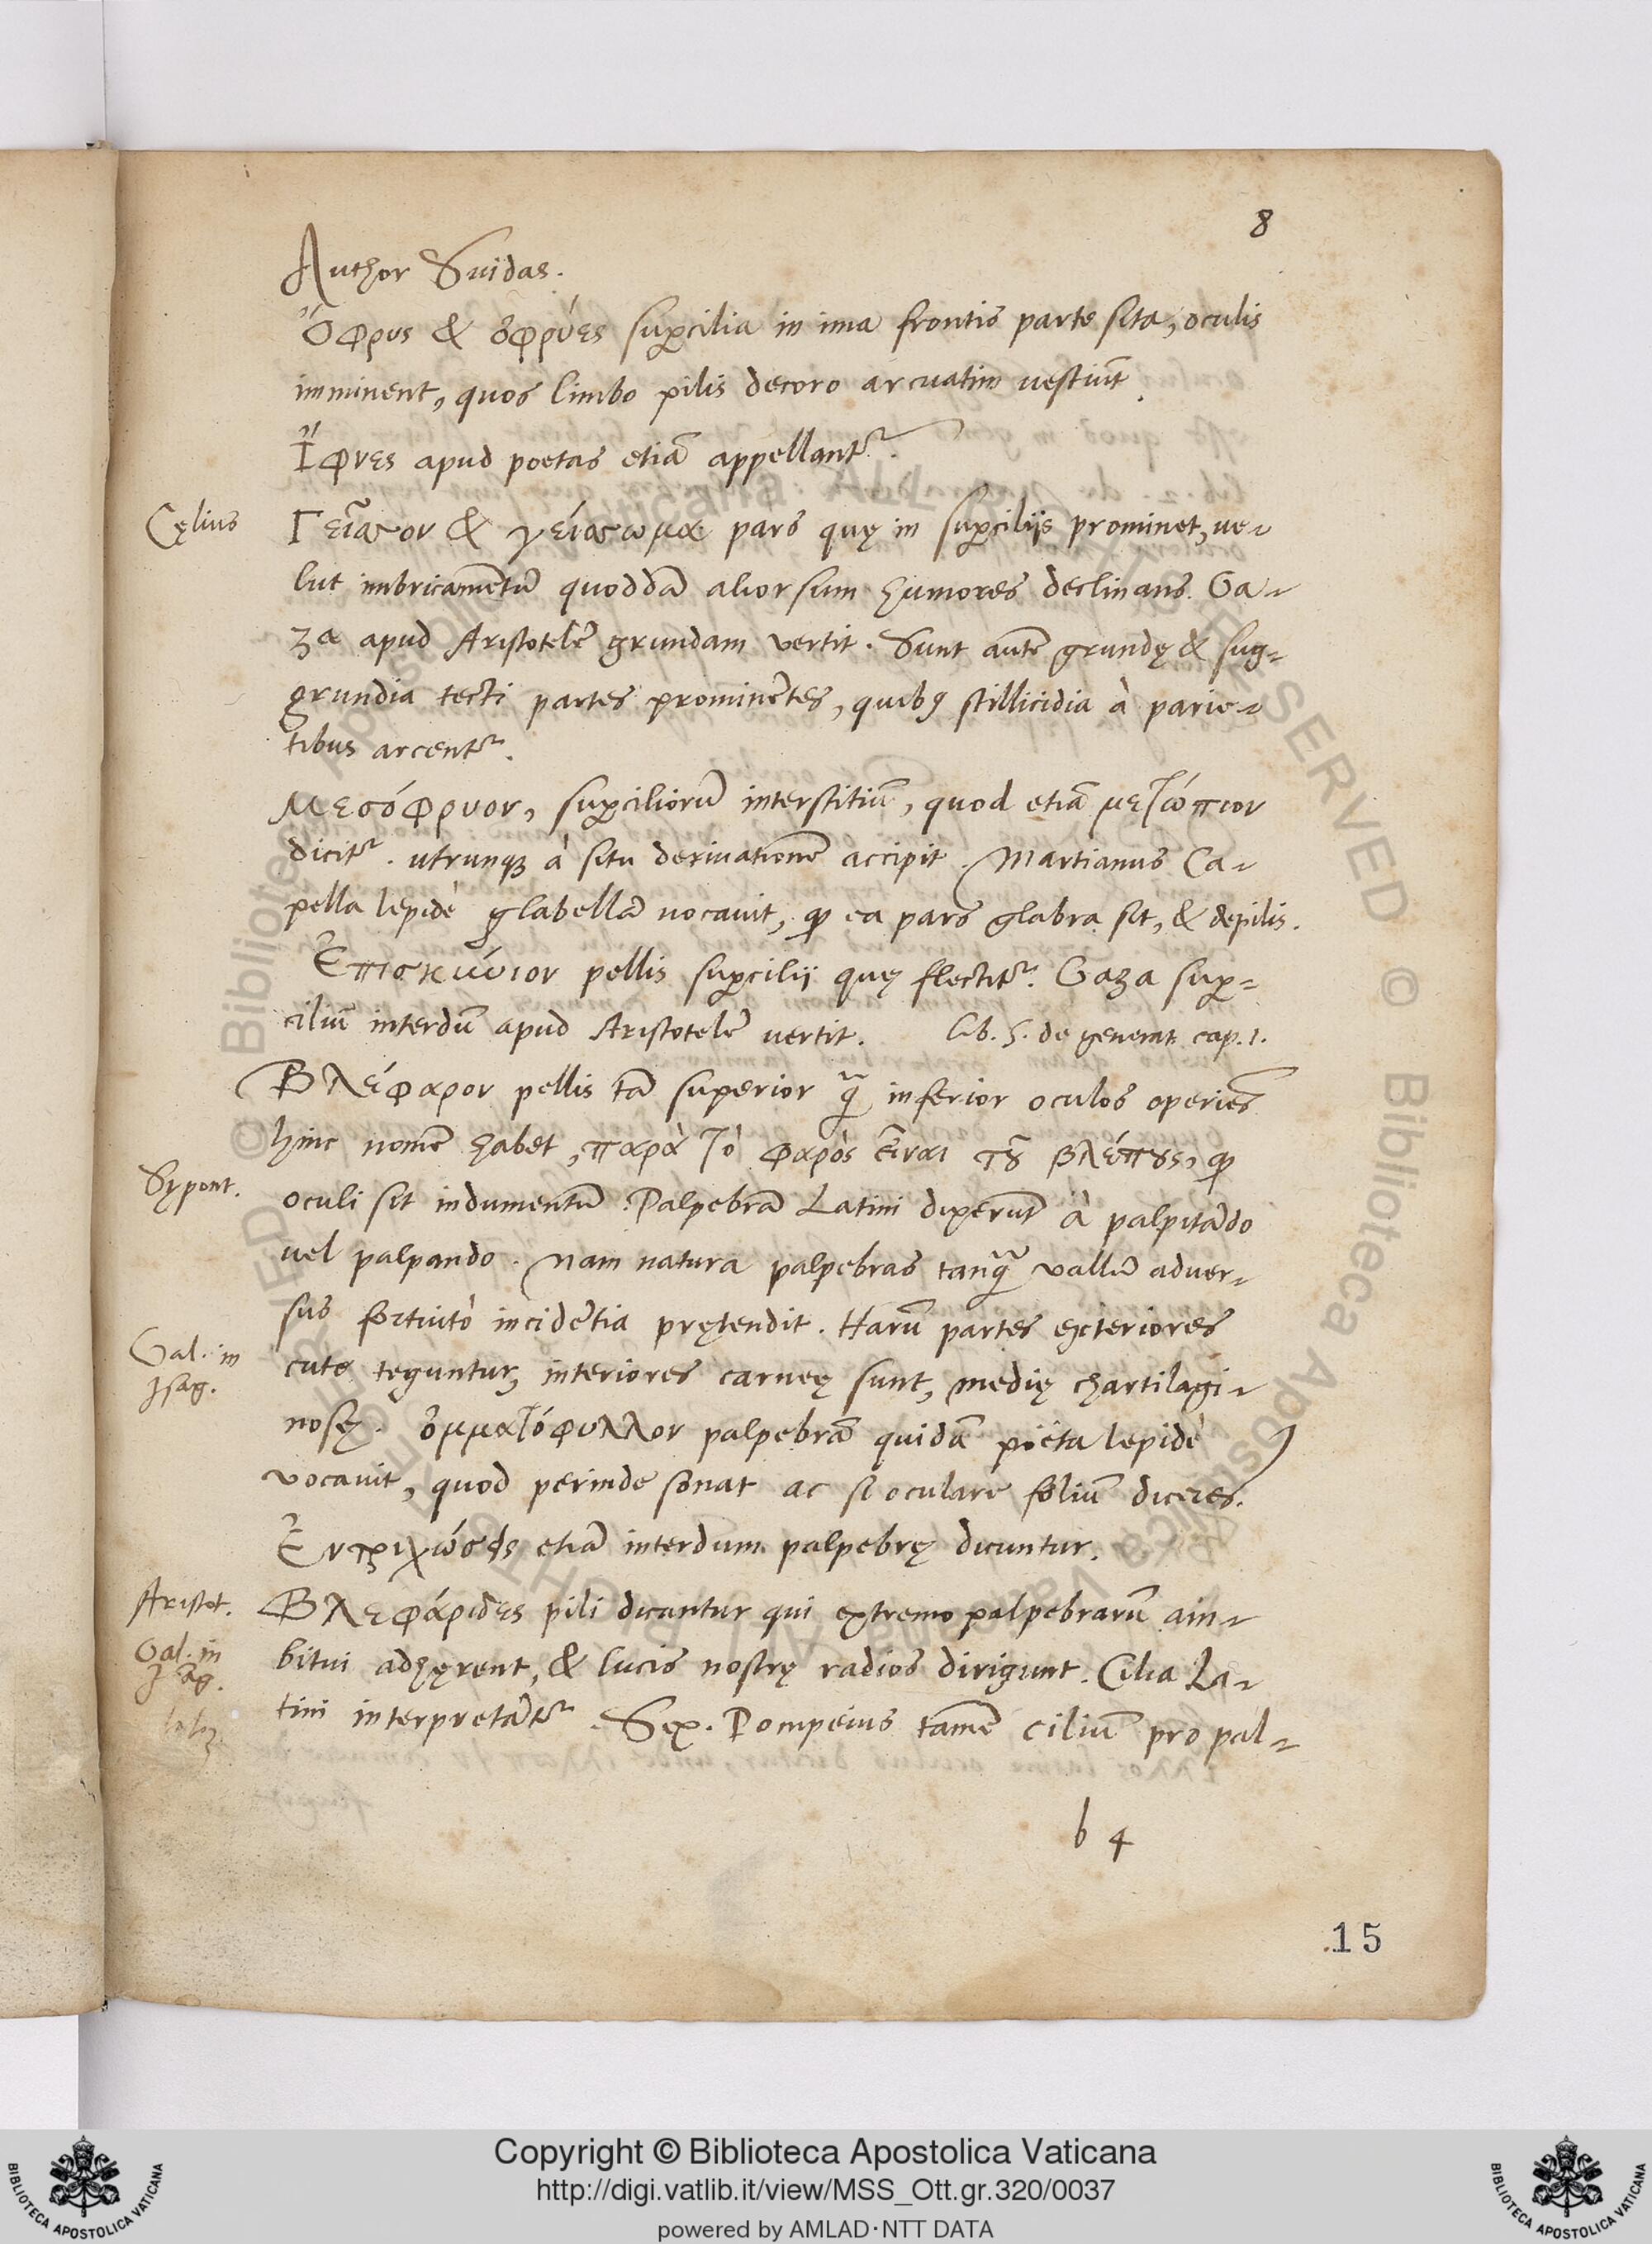 8
Author Suidas.
Ὄφρυς & ὀφρύες suꝑcilia in ima frontis parte sita, oculis
imminent, quos limbo pilis decoro arcuatim uestiũt.
Ἴφυες apud poetas etiã appellantr̃.
Cęlius
Γεῖσον & γείσωμα pars quę in suꝑciliis prominet, ue-
lut imbricamentũ quoddã aliorsum humores declinans. Ga-
za apud Aristotelẽ grundam vertit. Sunt autẽ grundę & sug-
grundia tecti partes prominẽtes, quibꝰ stillicidia à parie-
tibus arcentr̃.
Μεσόφρυον, suꝑciliorũ interstitiũ, quod etiã μετώπιον
dicitr̃. utrunqꝫ à situ deriuationẽ accipit. Martianus Ca-
pella lepidè glabellã uocauit, ꝙ ea pars glabra sit, & depilis.
Ἐπισκύνιον pellis suꝑcilii quę flectitr̃. Gaza suꝑ-
ciliũ interdũ apud Aristotelẽ uertit. Lib. 5. de generat. cap. 1.
Βλέφαρον pellis tã superior q̃ inferior oculos operiẽs
hinc nomẽ habet, παρὰ τὸ φαρὸς εἶναι τȣ͂ βλέπȣς, ꝙ
Sypont.
oculi sit indumentũ. Palpebrã Latini dixerũt à palpitãdo
uel palpando. Nam natura palpebras tanq̃ vallũ aduer-
sus fortuitò incidẽtia prętendit. Harũ partes exteriores
Gal. in
Isag.
cute teguntur, interiores carneę sunt, medię chartilagi-
nosę. ὀμματόφυλλον palpebrã quidã poëta lepidè
vocauit, quod perinde sonat ac si oculare foliũ diceres.
Ἐντριχώσεις etiã interdum palpebrę dicuntur.
Aristot.
Βλεφάρίδες pili dicuntur qui extremo palpebrarũ am-
Gal. in
Isag.
bitui adhęrent, & lucis nostrę radios dirigunt. Cilia La-
tini interpretãtr̃. Sex. Pompeius tamẽ ciliũ pro pal-
b 4
15
Copyright © Biblioteca Apostolica Vaticana
http://digi.vatlib.it/view/MSS_Ott.gr.320/0037
powered by AMLAD·NTT DATA
BIBLIOTECA APOSTOLICA VATICANA
BIBLIOTECA APOSTOLICA VATICANA